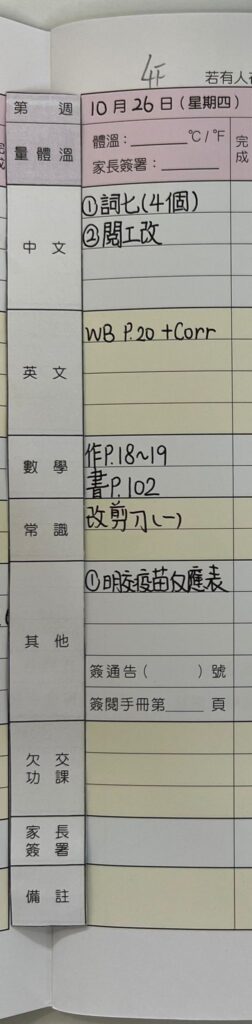 4F
若有人
第 週
10月26日(星期四)
完成
量體溫
體溫：______°C/°F
家長簽署：______
中文
①詞七(4個)
②閱工改
英文
WB P.20 +Corr
數學
作P.18~19
書P.102
常識
改剪刀(一)
其他
①明交疫苗反應表
簽通告( )號
簽閱手冊第____頁
欠交功課
家長簽署
備註